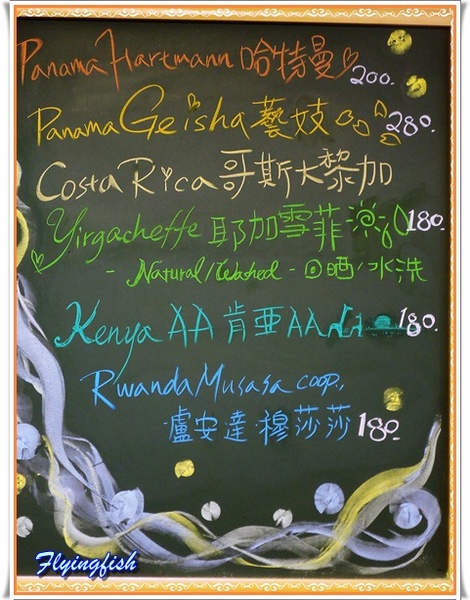 Panama Hartmann 哈特曼 200.
Panama Geisha 藝妓 280.
Costa Rica 哥斯大黎加
Yirgacheffe 耶加雪菲 180.
- Natural/Washed - 日晒/水洗
Kenya AA 肯亞AA 180.
Rwanda Musasa coop.
盧安達·穆莎莎 180.
Flyingfish